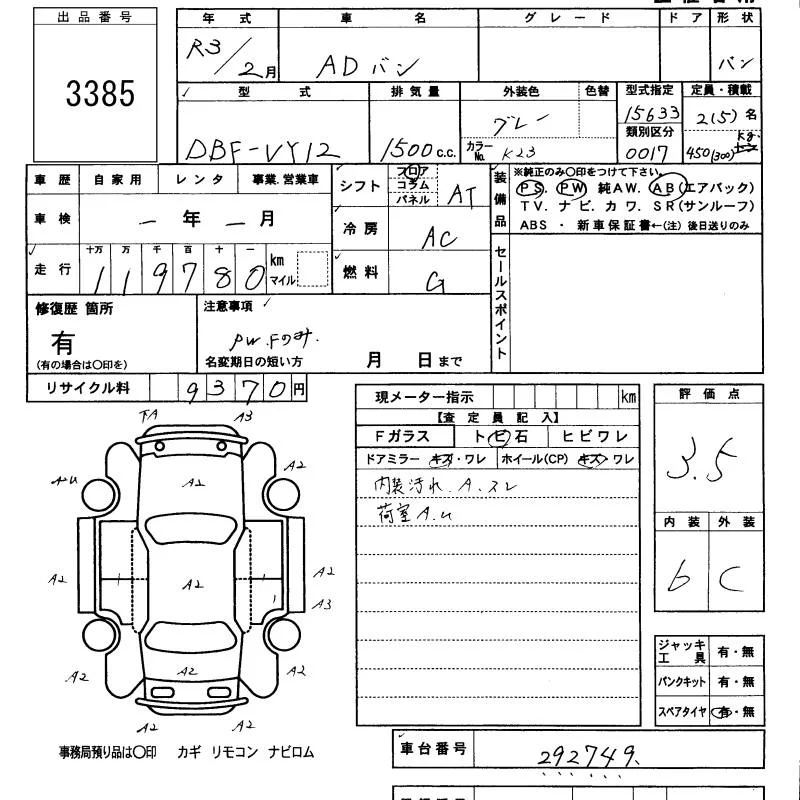 出品番号
3385
年式 車名 グレード ドア 形状
R3/2月 ADバン バン
型式 排気量 外装色 色替 型式指定 定員・積載
DBF-VY12 1500c.c. グレー カラーNo. K23 15633 2(5)名
類別区分 0017 450(300)kg
車歴 自家用 レンタ 事業.営業車
車検 ー年ー月
走行 十万 万 千 百 十 一
119780 km マイル
シフト フロア コラム パネル AT
冷房 AC
燃料 G
装備品 ※純正のみ〇印をつけて下さい。
PS. PW 純AW. AB(エアバック)
TV. ナビ. カワ. SR(サンルーフ)
ABS ・ 新車保証書←(注) 後日送りのみ
セールスポイント
修復歴 箇所
有
(有の場合は〇印を)
注意事項
PW.Fのみ.
名変期日の短い方 月 日まで
リサイクル料 9370円
現メーター指示 km
【査定員記入】
Fガラス トビ石 ヒビワレ
ドアミラー キズ・ワレ ホイール(CP) キズ ワレ
内装汚れ A.スレ
荷室A.u
評価点
3.5
内装 外装
b C
ジャッキ工具 有・無
パンクキット 有・無
スペアタイヤ 有・無
下A A3
Au A2 A2
A2 A2 A2
A3
A2 A2 A2
A2 A2
事務局預り品は〇印 カギ リモコン ナビロム
車台番号 292749.